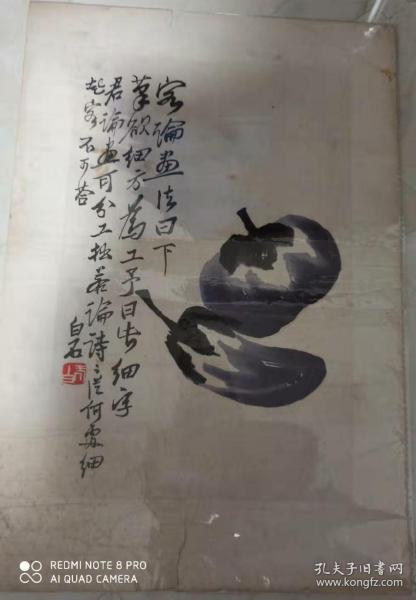 客论画法曰下
笔欲细方为工予曰此细字
君论画可分工拙若论诗诗从何处细
起客不可答
白石
REDMI NOTE 8 PRO
AI QUAD CAMERA
孔夫子旧书网
www.kongfz.com